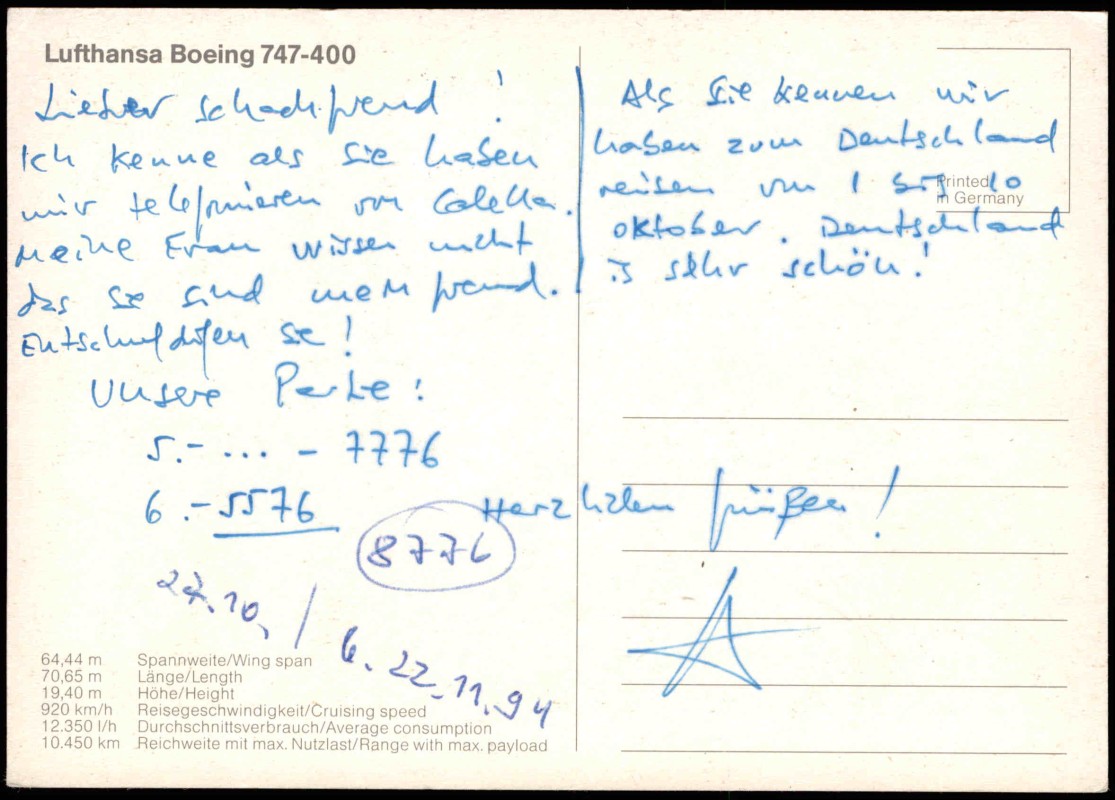 Lufthansa Boeing 747-400
Lieber schachfreund !
Ich kenne als Sie haben
mir telefonieren von Calella.
Meine Frau wissen nicht
das Sie sind mein freund.
Entschuldigen Sie !
Unsere Partie :
5.- ... - 7776
6 .- 5576
8776
27.10. /
6. 22.11.94
Als Sie kennen wir
haben zum Deutschland
reisen vom 1 bis 10
oktober . Deutschland
is sehr schön !
Printed
in Germany
Herzlichen grüßen !
64,44 m Spannweite/Wing span
70,65 m Länge/Length
19,40 m Höhe/Height
920 km/h Reisegeschwindigkeit/Cruising speed
12.350 l/h Durchschnittsverbrauch/Average consumption
10.450 km Reichweite mit max. Nutzlast/Range with max. payload